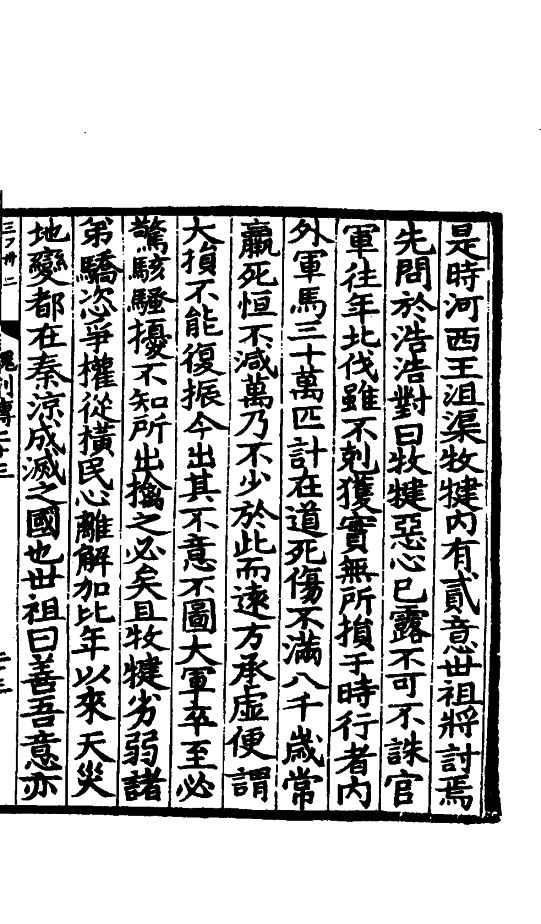 是時河西王沮渠牧犍内有貳意世祖將討焉
先問於浩浩對曰牧犍惡心已露不可不誅官
軍往年北伐雖不剋獲實無所損于時行者内
外軍馬三十萬匹計在道死傷不滿八千歲常
羸死恒不減萬乃不少於此而遠方承虛便謂
大損不能復振今出其不意不圖大軍卒至必
驚駭騷擾不知所出擒之必矣且牧犍劣弱諸
弟驕恣爭權從橫民心離解加比年以來天災
地變都在秦涼成滅之國也世祖曰善吾意亦